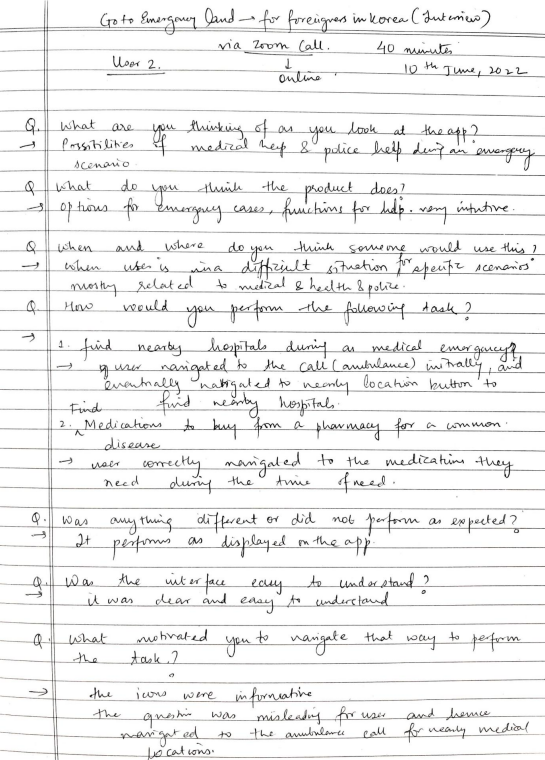 Go to Emergency Card → for foreigners in Korea (Interview)
via Zoom Call. 40 minutes
User 2. ↓ 10th June, 2022
online
Q. What are you thinking of as you look at the app?
→ Possibilities of medical help & police help during an emergency
scenario.
Q What do you think the product does?
→ options for emergency cases, functions for help. very intutive.
Q When and where do you think someone would use this?
→ when user is in a difficult situation for specific scenarios
mostly related to medical & health & police.
Q. How would you perform the following task?
→
1. find nearby hospitals during a medical emergency?
→ user navigated to the call (ambulance) initially, and
eventually navigated to nearly location button to
find nearby hospitals.
2. Find Medications to buy from a pharmacy for a common
disease
→ user correctly navigated to the medications they
need during the time of need.
Q. Was anything different or did not perform as expected?
→ It performs as displayed on the app.
Q. Was the interface easy to understand?
→ it was clear and easy to understand
Q. What motivated you to navigate that way to perform
the task?
→ the icons were informative
the question was misleading for user and hence
navigated to the ambulance call for nearly medical
locations.